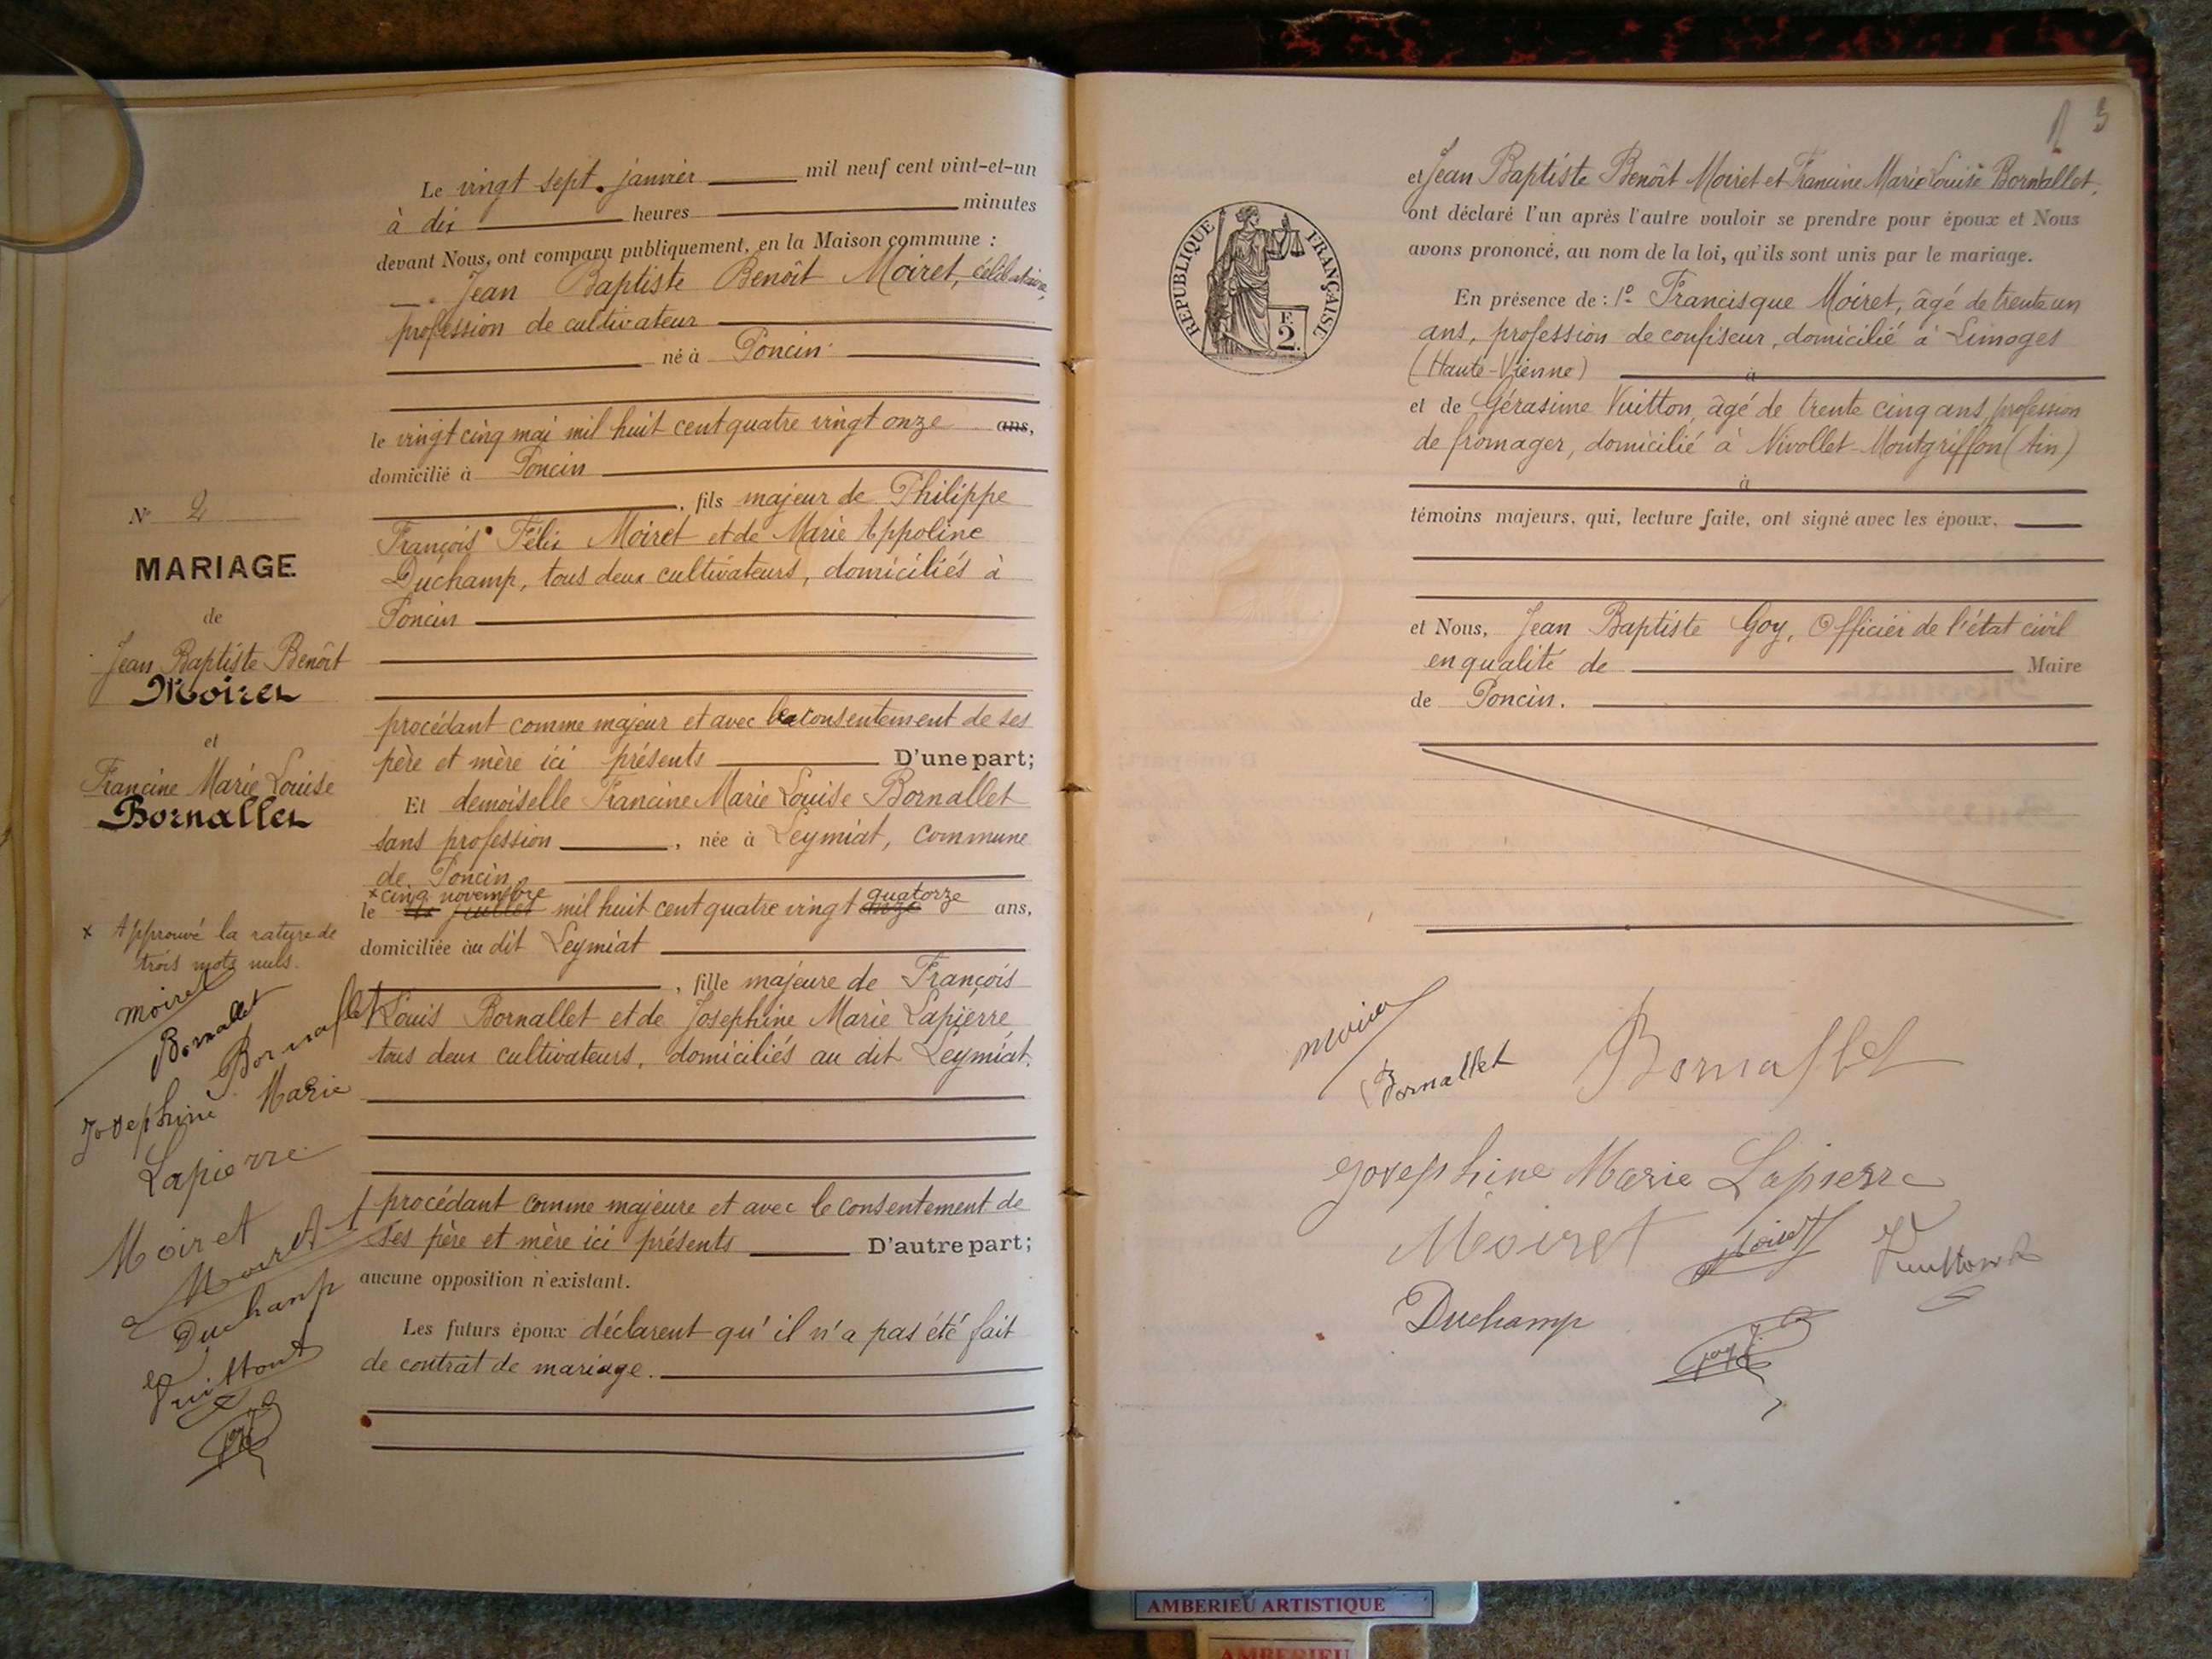 Le vingt sept janvier mil neuf cent vint-et-un
à dix heures minutes
devant Nous, ont comparu publiquement, en la Maison commune :
Jean Baptiste Benoît Moiret, célibataire,
profession de cultivateur
né à Poncin
le vingt cinq mai mil huit cent quatre vingt onze ans,
domicilié à Poncin
, fils majeur de Philippe
François Félix Moiret et de Marie Appoline
Duchamp, tous deux cultivateurs, domiciliés à
Poncin
procédant comme majeur et avec le consentement de ses
père et mère ici présents D'une part;
Et demoiselle Francine Marie Louise Bornallet
sans profession , née à Leymiat, commune
de Poncin
x cinq novembre quatorze
le juillet mil huit cent quatre vingt onze ans,
domiciliée au dit Leymiat
, fille majeure de François
Louis Bornallet et de Josephine Marie Lapierre
tous deux cultivateurs, domiciliés au dit Leymiat.
procédant comme majeure et avec le consentement de
ses père et mère ici présents D'autre part;
aucune opposition n'existant.
Les futurs époux déclarent qu'il n'a pas été fait
de contrat de mariage.
N° 2
MARIAGE
de
Jean Baptiste Benoît
Moiret
et
Francine Marie Louise
Bornallet
x Approuvé la rature de
trois mots nuls.
moiret
Bornallet
Bornallet
Josephine Marie
Lapierre
Moiret
Moiret
Duchamp
Vuitton
Goy
3
RÉPUBLIQUE FRANÇAISE
F.
2.
et Jean Baptiste Benoît Moiret et Francine Marie Louise Bornallet,
ont déclaré l'un après l'autre vouloir se prendre pour époux et Nous
avons prononcé, au nom de la loi, qu'ils sont unis par le mariage.
En présence de : 1° Francisque Moiret, âgé de trente un
ans, profession de confiseur, domicilié à Limoges
(Haute-Vienne) à
et de Gérasime Vuitton, âgé de trente cinq ans, profession
de fromager, domicilié à Nivollet-Montgriffon (Ain)
à
témoins majeurs, qui, lecture faite, ont signé avec les époux,
et Nous, Jean Baptiste Goy, Officier de l'état civil
en qualité de Maire
de Poncin.
moiret
Bornallet
Bornallet
Josephine Marie Lapierre
Moiret
Moiret
Vuitton
Duchamp
Goy
AMBERIEU ARTISTIQUE
AMBERIEU